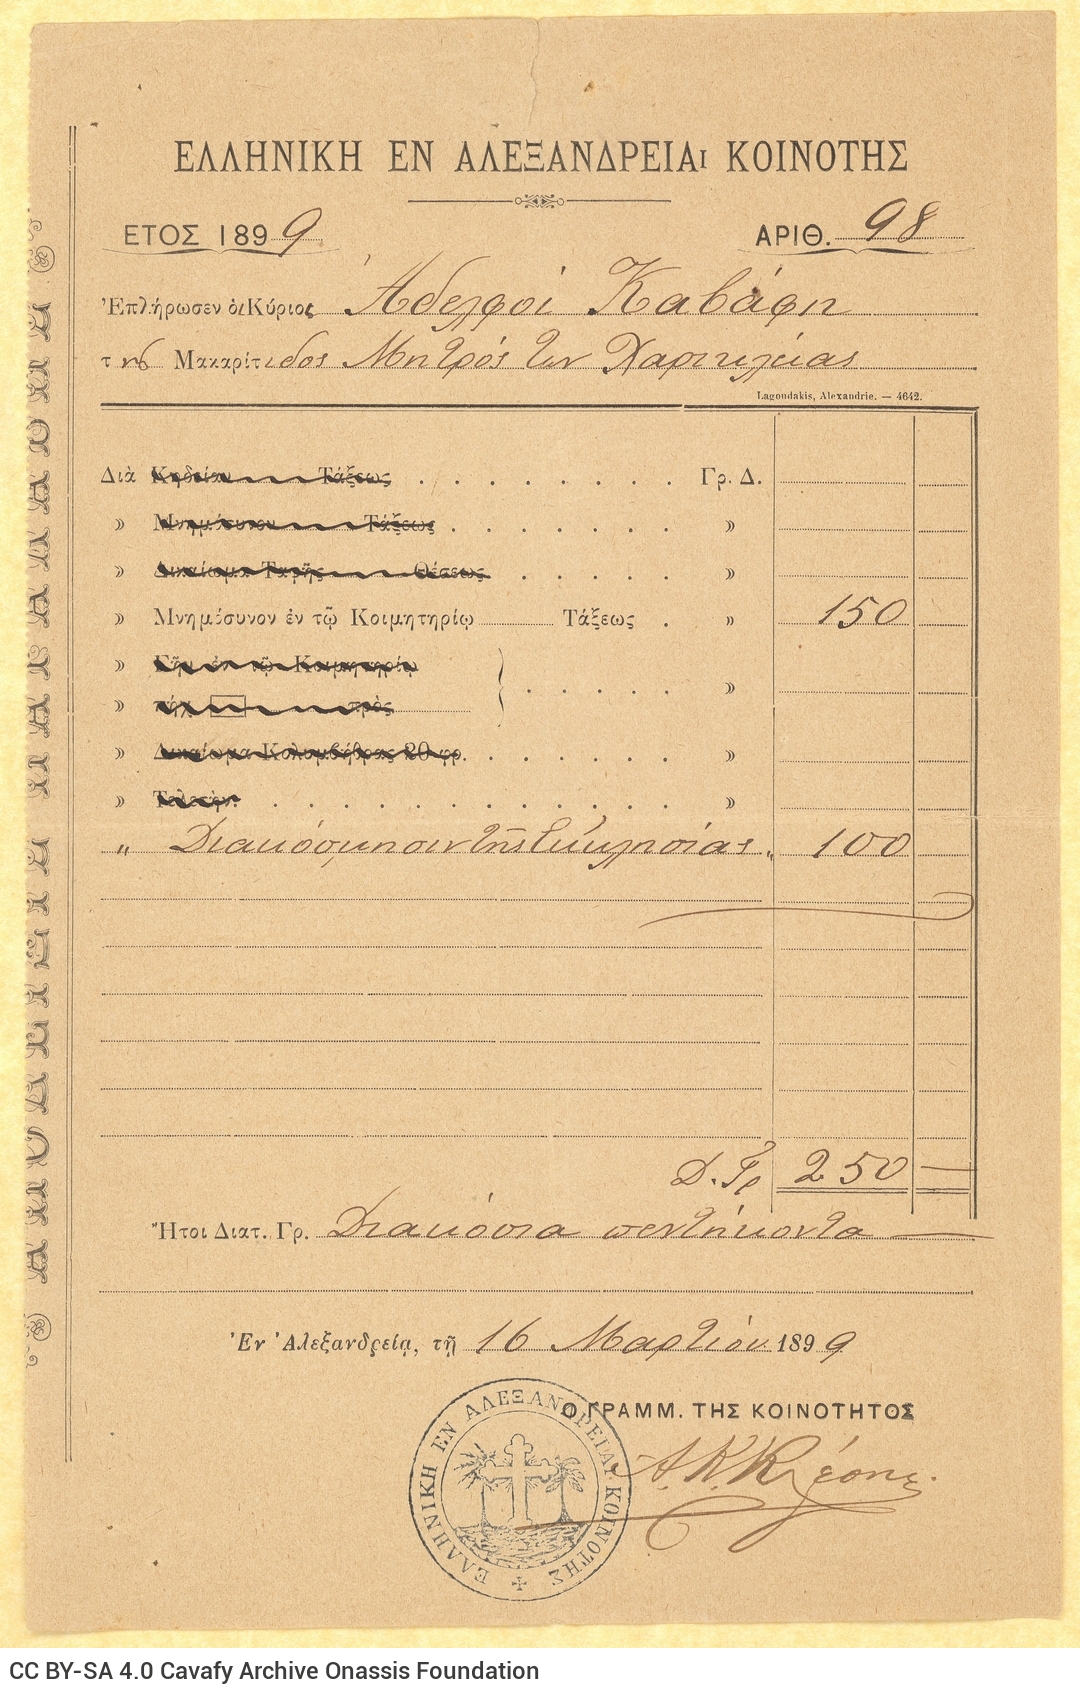 ΕΛΛΗΝΙΚΗ ΕΝ ΑΛΕΞΑΝΔΡΕΙΑι ΚΟΙΝΟΤΗΣ
ΕΤΟΣ 1899 ΑΡΙΘ. 98
Ἐπλήρωσεν ὁ Κύριος Ἀδελφοὶ Καβάφη
της Μακαρίτιδος Μητρός των Χαρικλείας
Lagoudakis, Alexandrie. — 4642.
Διὰ Κηδείαν Τάξεως . . . . . . . . Γρ. Δ.
» Μνημόσυνον Τάξεως . . . . . . . »
» Δικαίωμα Ταφῆς Θέσεως . . . . . »
» Μνημόσυνον ἐν τῷ Κοιμητηρίῳ Τάξεως . » 150
» Γῆν ἐν τῷ Κοιμητηρίῳ
» πήχ πρὸς . . . . . »
» Δικαίωμα Κολυμβήθρας 20 φρ. . . . . . . »
» . . . . . . . . . . . . »
" Διακόσμησιν τῆς Ἐκκλησίας " 100
Δ. Γρ 250 —
Ἤτοι Διατ. Γρ. Διακόσια πεντήκοντα —
Ἐν Ἀλεξανδρείᾳ, τῇ 16 Μαρτίου 1899
Ο ΓΡΑΜΜ. ΤΗΣ ΚΟΙΝΟΤΗΤΟΣ
ΕΛΛΗΝΙΚΗ ΕΝ ΑΛΕΞΑΝΔΡΕΙΑΙ ΚΟΙΝΟΤΗΣ
CC BY-SA 4.0 Cavafy Archive Onassis Foundation